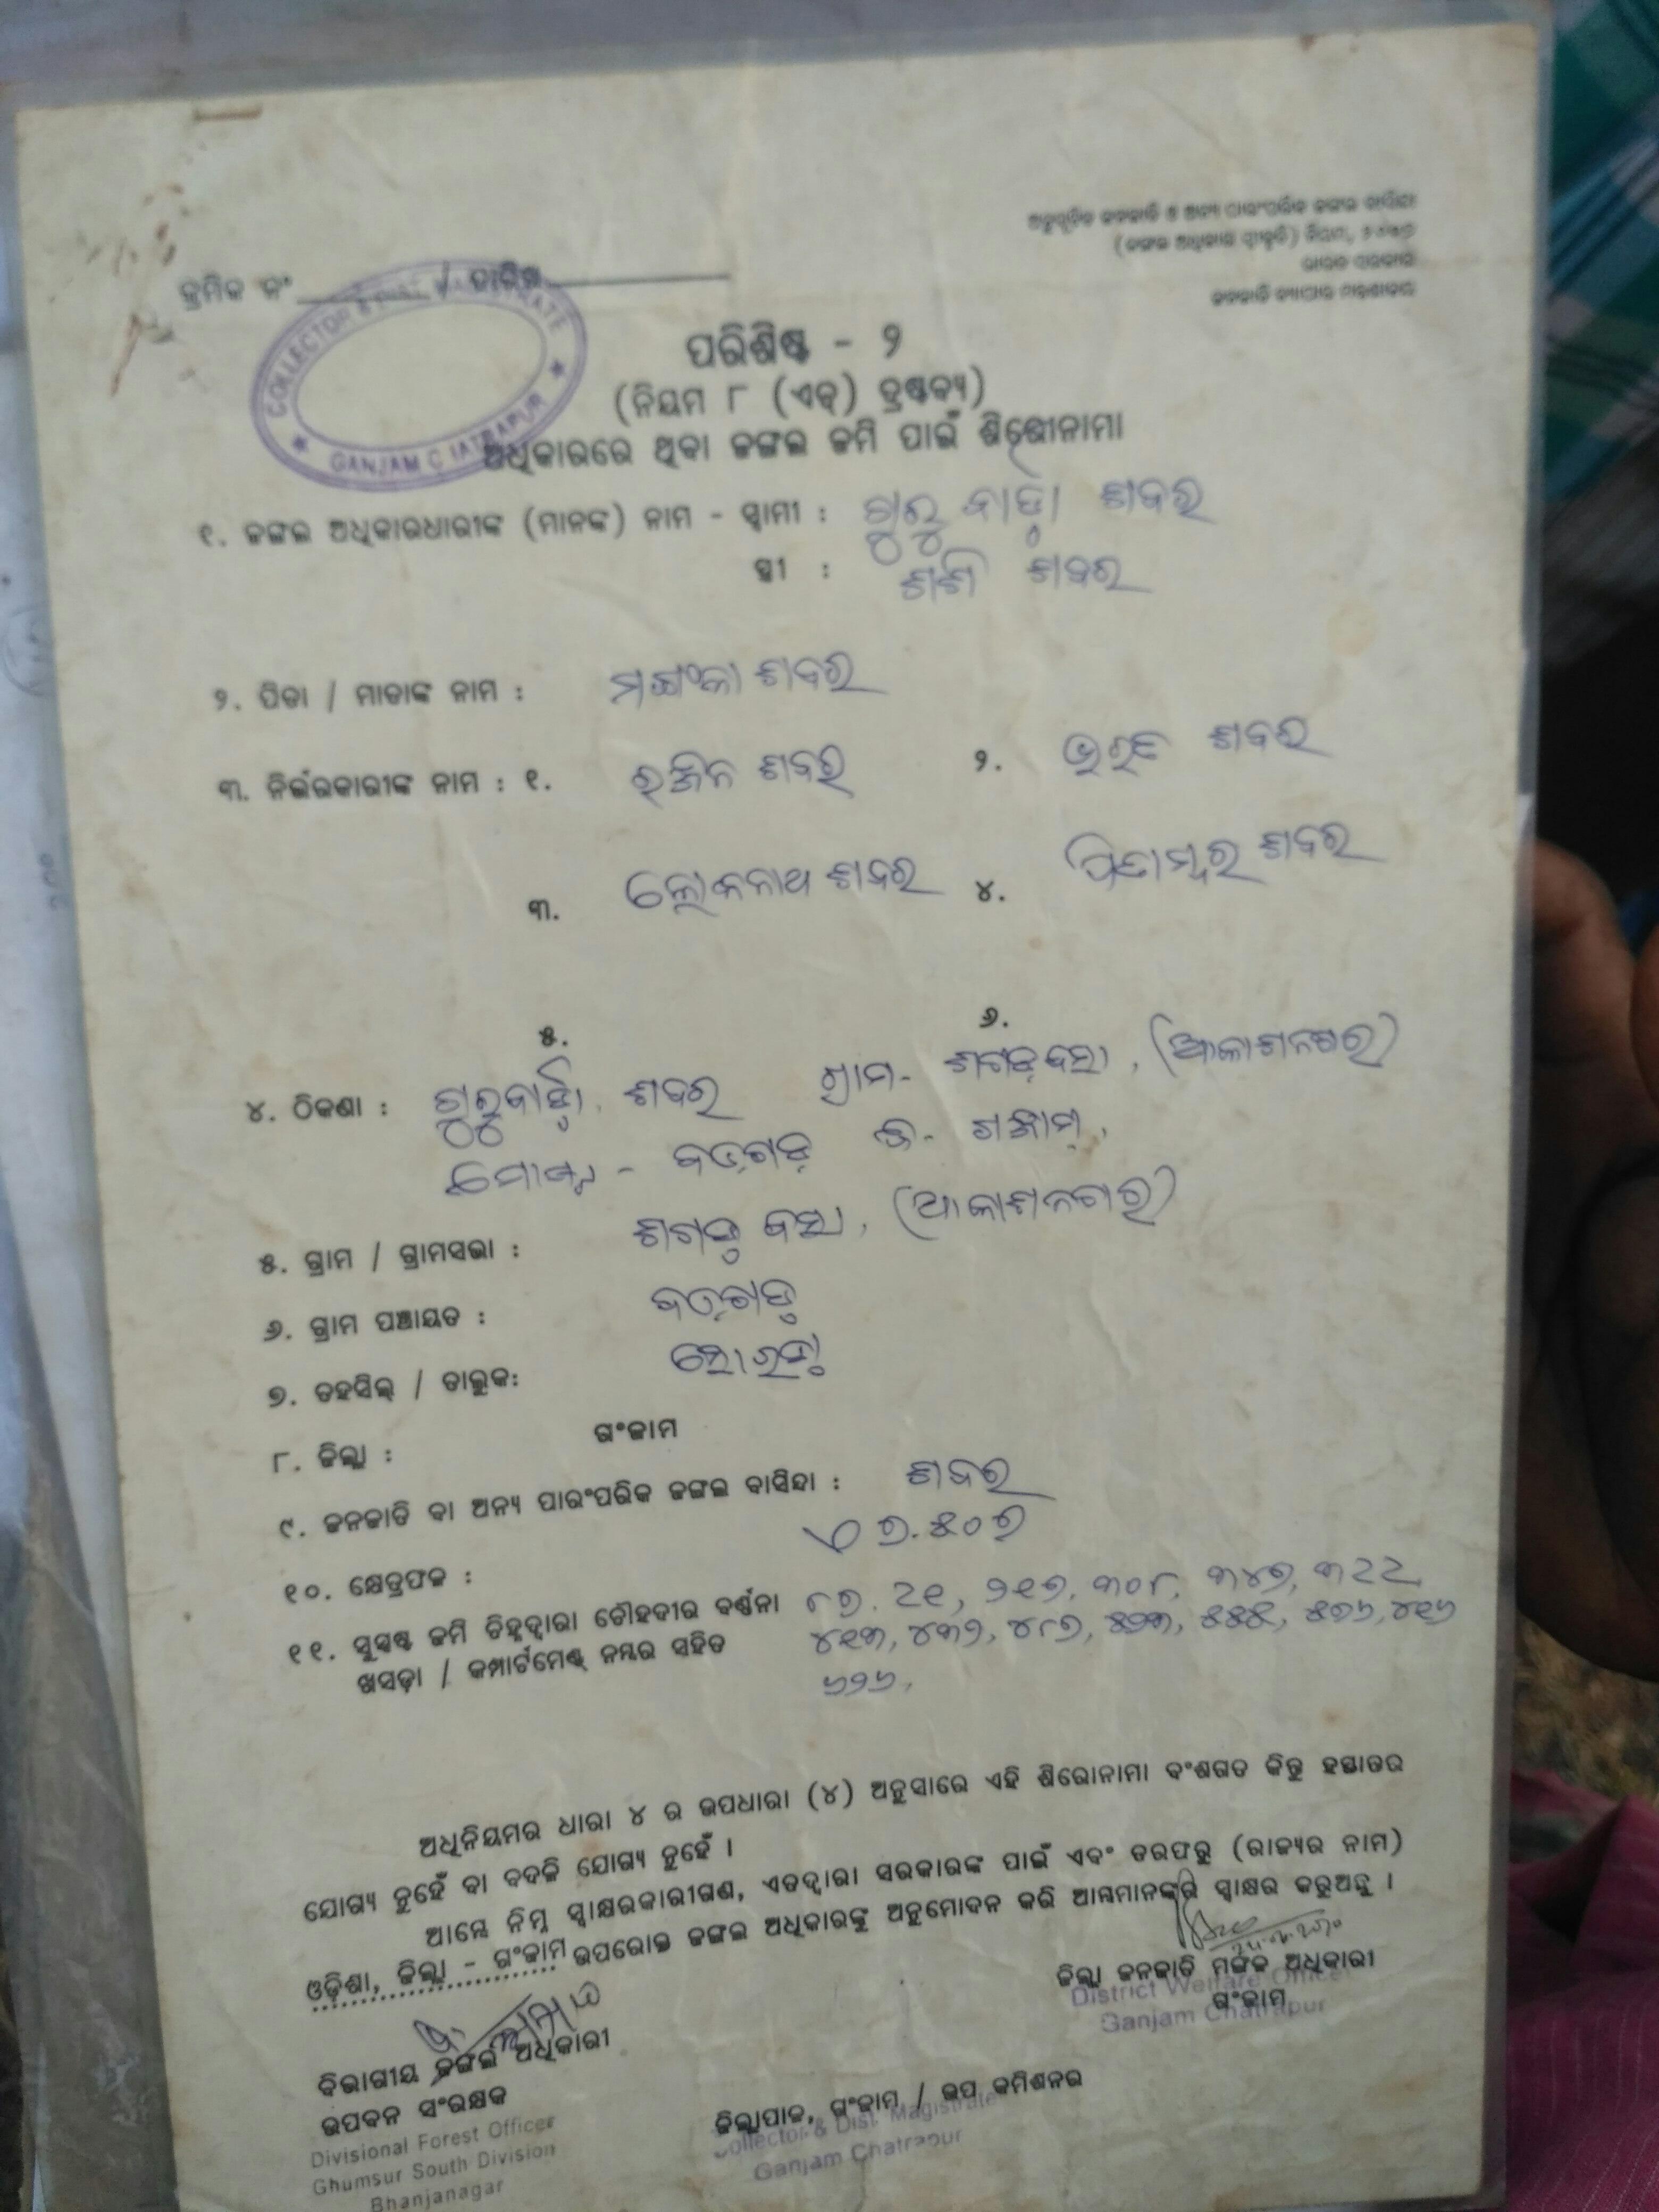 ଅନୁସୂଚିତ ଜନଜାତି ଓ ଅନ୍ୟ ପାରଂପରିକ ଜଙ୍ଗଲ ବାସିନ୍ଦା
(ଜଙ୍ଗଲ ଅଧିକାର ସ୍ୱୀକୃତି) ନିୟମ, ୨୦୦୭
ଭାରତ ସରକାର
ଜନଜାତି ବ୍ୟାପାର ମନ୍ତ୍ରଣାଳୟ
କ୍ରମିକ ନଂ / ତାରିଖ
COLLECTOR & DIST. MAGISTRATE
GANJAM CHATRAPUR
ପରିଶିଷ୍ଟ - ୨
(ନିୟମ ୮ (ଏଚ୍) ଦ୍ରଷ୍ଟବ୍ୟ)
ଅଧିକାରରେ ଥିବା ଜଙ୍ଗଲ ଜମି ପାଇଁ ଶିରୋନାମା
୧. ଜଙ୍ଗଲ ଅଧିକାରଧାରୀଙ୍କ (ମାନଙ୍କ) ନାମ - ସ୍ୱାମୀ : ଶବର
ସ୍ତ୍ରୀ : ଶଶି ଶବର
୨. ପିତା / ମାତାଙ୍କ ନାମ : ଶବର
୩. ନିର୍ଭରକାରୀଙ୍କ ନାମ : ୧. ରଞ୍ଜିନ ଶବର ୨. ଭରତ ଶବର
୩. ଲୋକନାଥ ଶବର ୪. ପିତାମ୍ବର ଶବର
୫. ୬.
୪. ଠିକଣା : ଶବର ଗ୍ରାମ- (ଆକାଶନଗର)
ବଡ଼ଗଡ଼ ଜି- ଗଞ୍ଜାମ,
୫. ଗ୍ରାମ / ଗ୍ରାମସଭା : (ଆକାଶନଗର)
୬. ଗ୍ରାମ ପଞ୍ଚାୟତ : ବଡ଼ଗଡ଼
୭. ତହସିଲ୍ / ତାଲୁକ: ସୋରଡ଼ା
୮. ଜିଲ୍ଲା : ଗଂଜାମ
୯. ଜନଜାତି ବା ଅନ୍ୟ ପାରଂପରିକ ଜଙ୍ଗଲ ବାସିନ୍ଦା : ଶବର
୧୦. କ୍ଷେତ୍ରଫଳ :
୧୧. ସୁସ୍ପଷ୍ଟ ଜମି ଚିହ୍ନଦ୍ୱାରା ଚୌହଦୀର ବର୍ଣ୍ଣନା ୨୧୭, ୩୦୮, ୩୪୭,
ଖସଡ଼ା / କମ୍ପାର୍ଟମେଣ୍ଟ୍ ନମ୍ବର ସହିତ ୪୧୩, ୪୩୨, ୪୮୭, ୫୨୩, ୫୫୫, ୫୭୬, ୪୧୬
୬୨୬,
ଅଧିନିୟମର ଧାରା ୪ ର ଉପଧାରା (୪) ଅନୁସାରେ ଏହି ଶିରୋନାମା ବଂଶଗତ କିନ୍ତୁ ହସ୍ତାନ୍ତର
ଯୋଗ୍ୟ ନୁହେଁ ବା ବଦଳି ଯୋଗ୍ୟ ନୁହେଁ ।
ଆମ୍ଭେ ନିମ୍ନ ସ୍ୱାକ୍ଷରକାରୀଗଣ, ଏତଦ୍ୱାରା ସରକାରଙ୍କ ପାଇଁ ଏବଂ ତରଫରୁ (ରାଜ୍ୟର ନାମ)
ଓଡ଼ିଶା, ଜିଲ୍ଲା - ଗଂଜାମ ଉପରୋକ୍ତ ଜଙ୍ଗଲ ଅଧିକାରଙ୍କୁ ଅନୁମୋଦନ କରି ଆମ୍ଭମାନଙ୍କର ସ୍ୱାକ୍ଷର କରୁଅଛୁ ।
ଜିଲ୍ଲା ଜନଜାତି ମଙ୍ଗଳ ଅଧିକାରୀ
ଗଂଜାମ
District Welfare Officer
Ganjam Chatrapur
ବିଭାଗୀୟ ଜଙ୍ଗଲ ଅଧିକାରୀ
ଉପବନ ସଂରକ୍ଷକ
Divisional Forest Officer
Ghumsur South Division
Bhanjanagar
ଜିଲ୍ଲାପାଳ, ଗଂଜାମ / ଉପ କମିଶନର
Collector & Dist. Magistrate
Ganjam Chatrapur